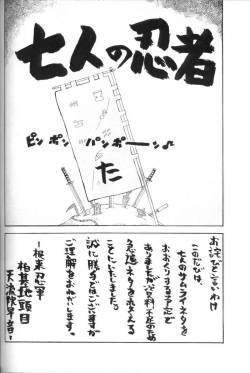 七人の忍者
ピンポンパンポーン♪
た
お詫びと言いわけ
このたびは、
七人のサムライネタを
おおくりする予定で
ありましたが資料不足のため
急遽ネタをかえる
ことにいたしました。
誠に勝手ではございますが
ご理解をおねがいします。
－根来忍軍